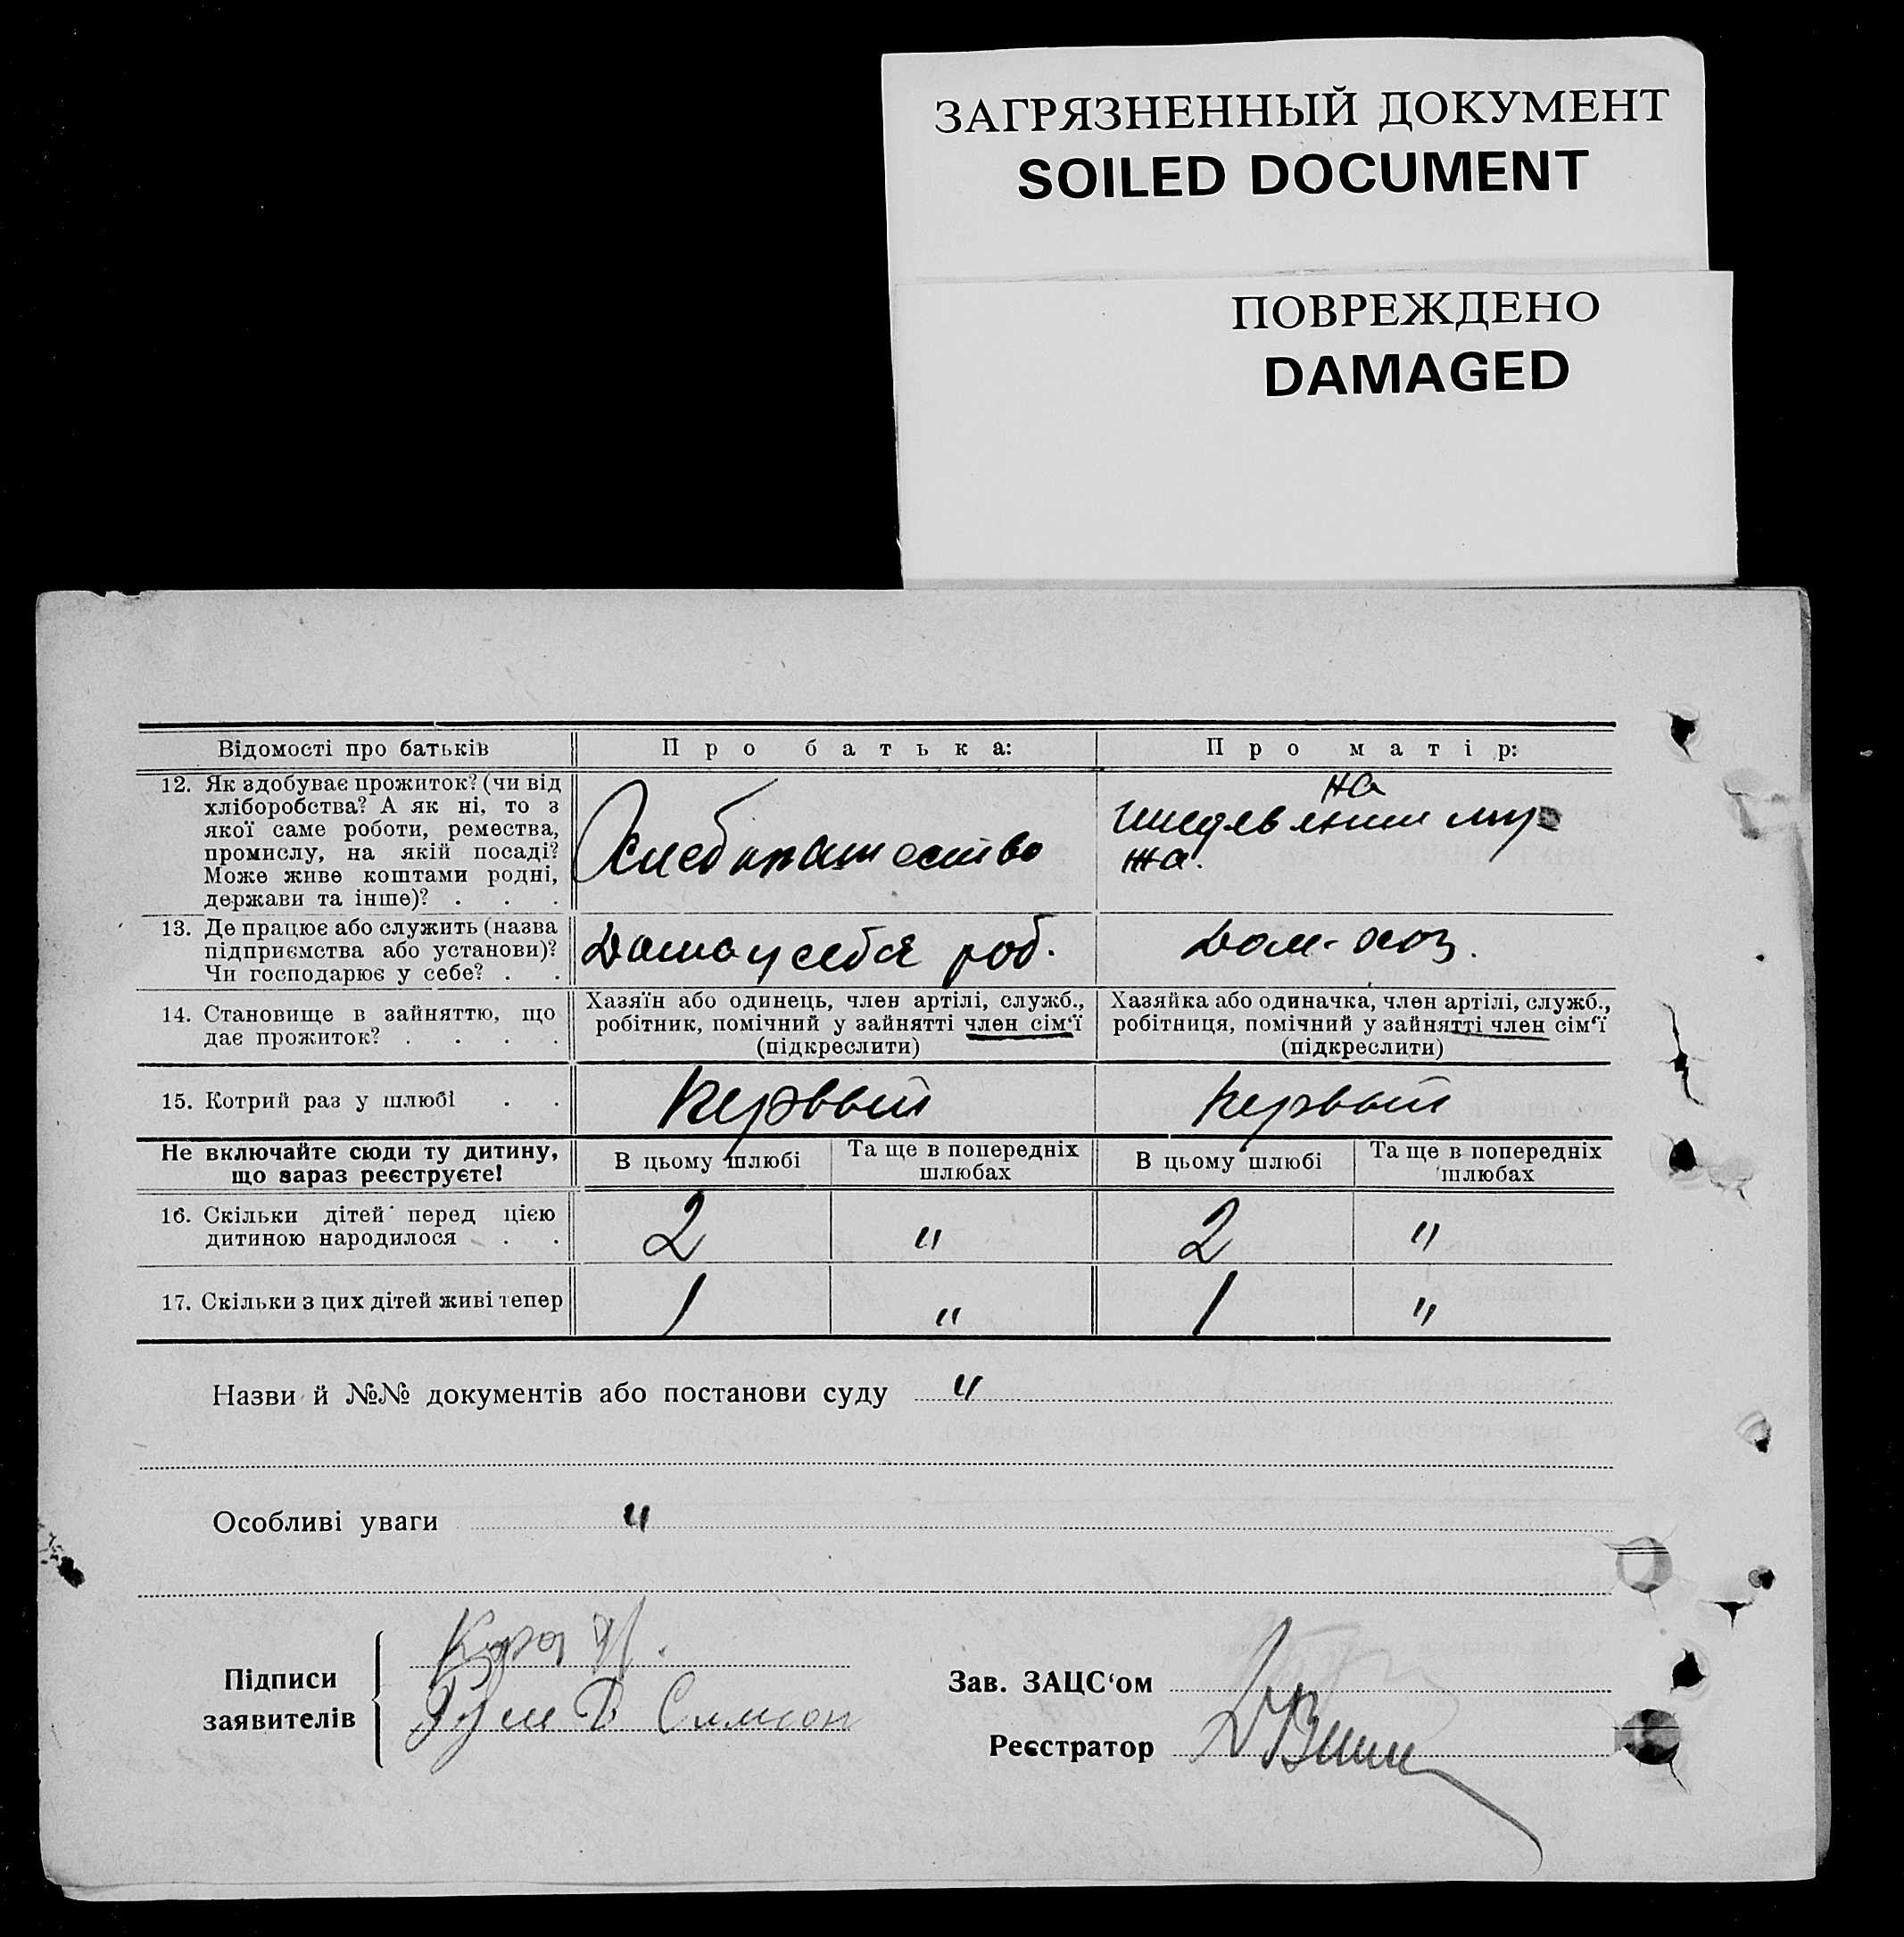 ЗАГРЯЗНЕННЫЙ ДОКУМЕНТ
SOILED DOCUMENT
ПОВРЕЖДЕНО
DAMAGED
Відомості про батьків
Про батька:
Про матір:
12. Як здобуває прожиток? (чи від
хліборобства? А як ні, то з
якої саме роботи, ремества,
промислу, на якій посаді?
Може живе коштами родні,
держави та інше)? . . .
Хлебопашество
на
иждевлении му-
жа.
13. Де працює або служить (назва
підприємства або установи)?
Чи господарює у себе? . .
Дома у себя раб.
Дом-хоз.
14. Становище в зайняттю, що
дає прожиток? . . . .
Хазяїн або одинець, член артілі, служб.,
робітник, помічний у зайнятті член сім'ї
(підкреслити)
Хазяйка або одиначка, член артілі, служб.,
робітниця, помічний у зайнятті член сім'ї
(підкреслити)
15. Котрий раз у шлюбі . .
Первый
Первый
Не включайте сюди ту дитину,
що зараз реєструєте!
В цьому шлюбі
Та ще в попередніх
шлюбах
В цьому шлюбі
Та ще в попередніх
шлюбах
16. Скільки дітей перед цією
дитиною народилося . .
2 " 2 "
17. Скільки з цих дітей живі тепер
1 " 1 "
Назви й №№ документів або постанови суду "
Особливі уваги "
Підписи
заявителів
Зав. ЗАЦС'ом
Реєстратор